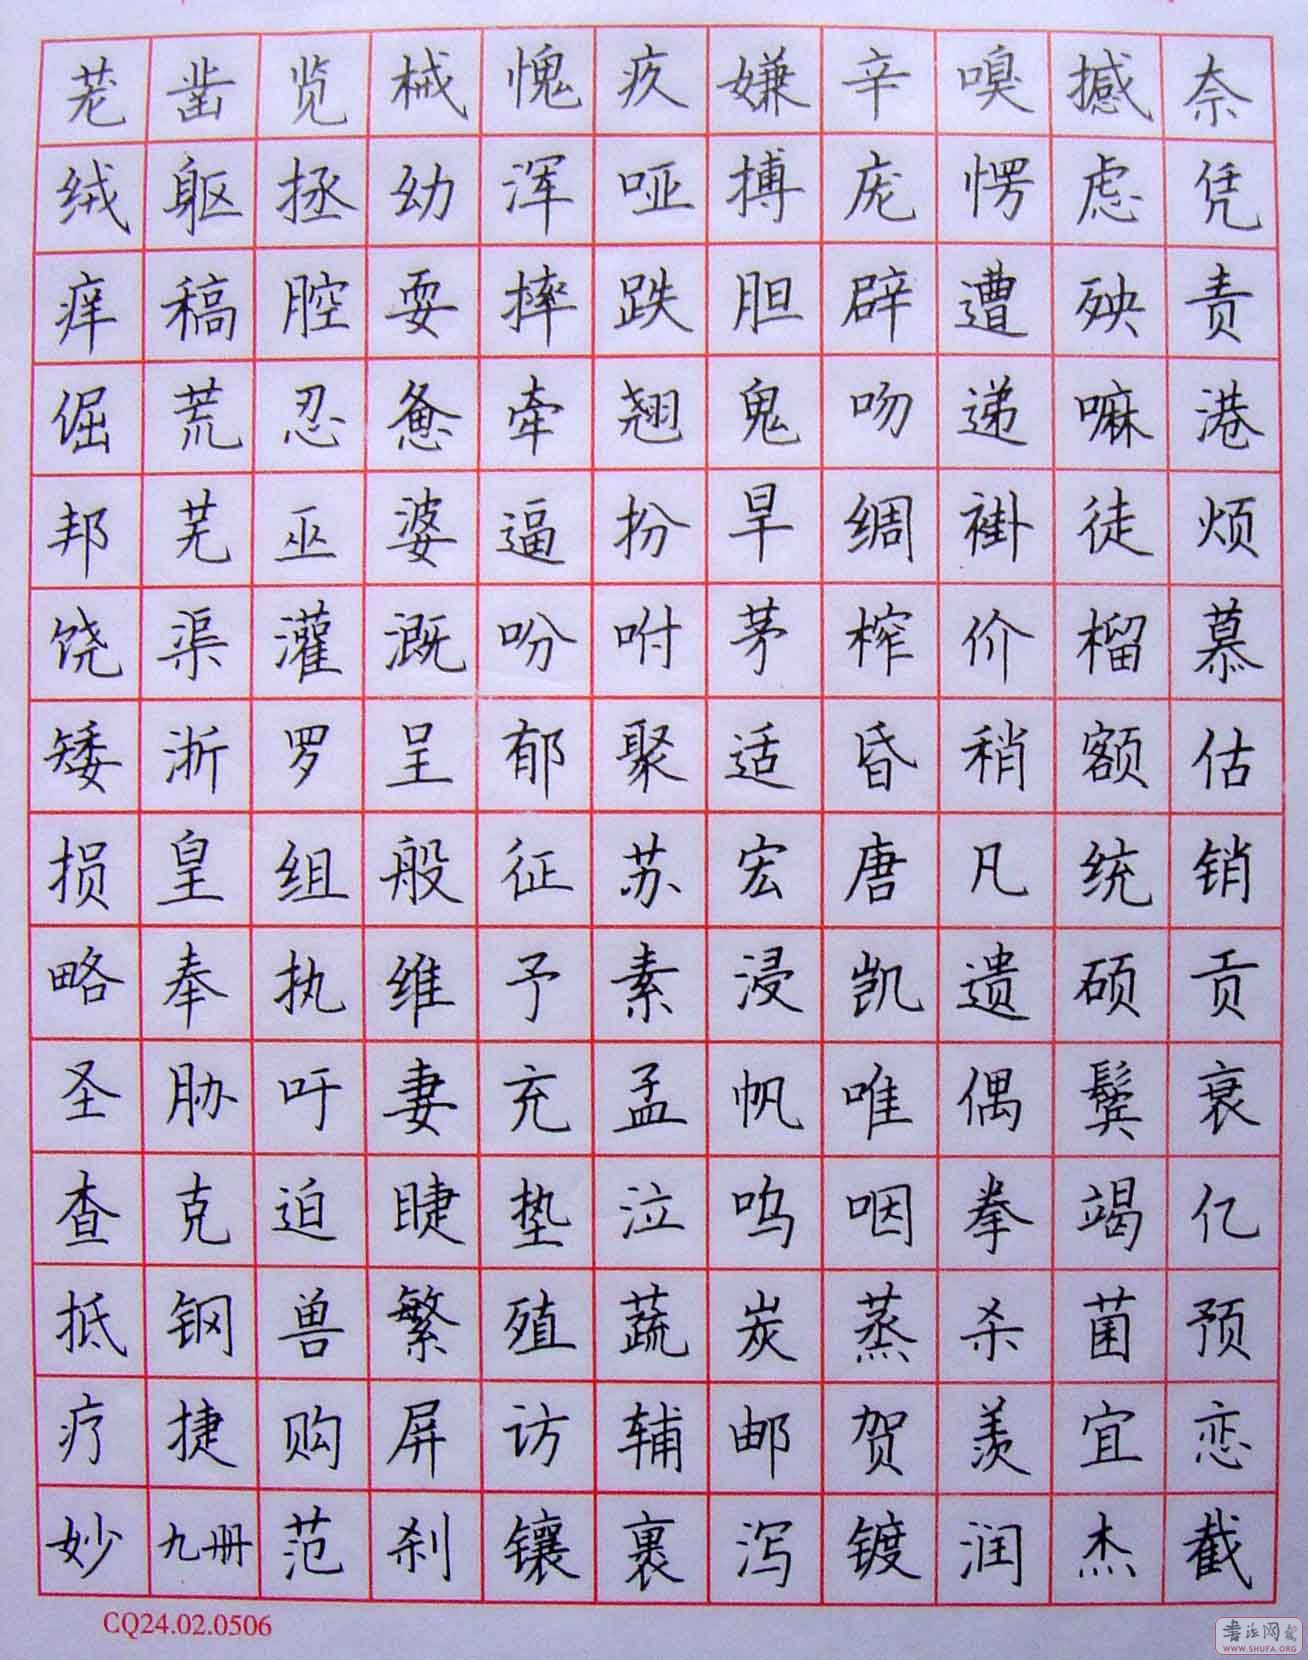 茏凿览械愧疚嫌辛嗅撼奈
绒躯拯幼浑哑搏庞愕虑凭
痒稿腔耍摔跌胆辟遭殃责
倔荒忍惫牵翘鬼吻递嘛港
邦芜巫婆逼扮旱绸褂徒烦
饶渠灌溉吩咐茅榨价榴慕
矮浙罗呈郁聚适昏稍额估
损皇组般征苏宏唐凡统销
略奉执维予素浸凯遗硕贡
圣胁吁妻充孟帆唯偶鬓衰
查克迫睫垫泣呜咽拳竭亿
抵钢兽繁殖蔬炭蒸杀菌预
疗捷购屏访辅邮贺羡宜恋
妙九册范刹镶裹泻镀润杰截
CQ24.02.0506
书法网
WWW.SHUFA.ORG